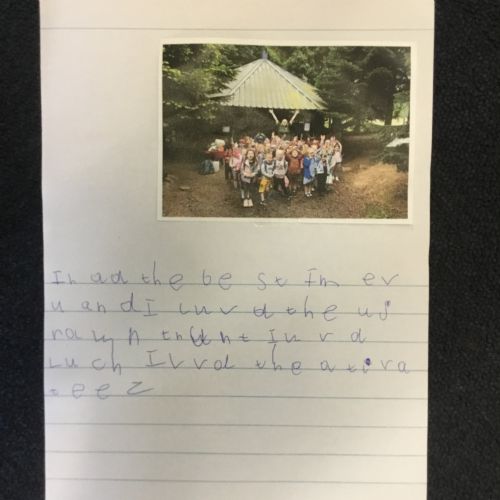 I h ad the be st Im ev
u and I luv d the us
na uy n thu n t I u v d
Lu ch I l v v d the a ti va
t e e z